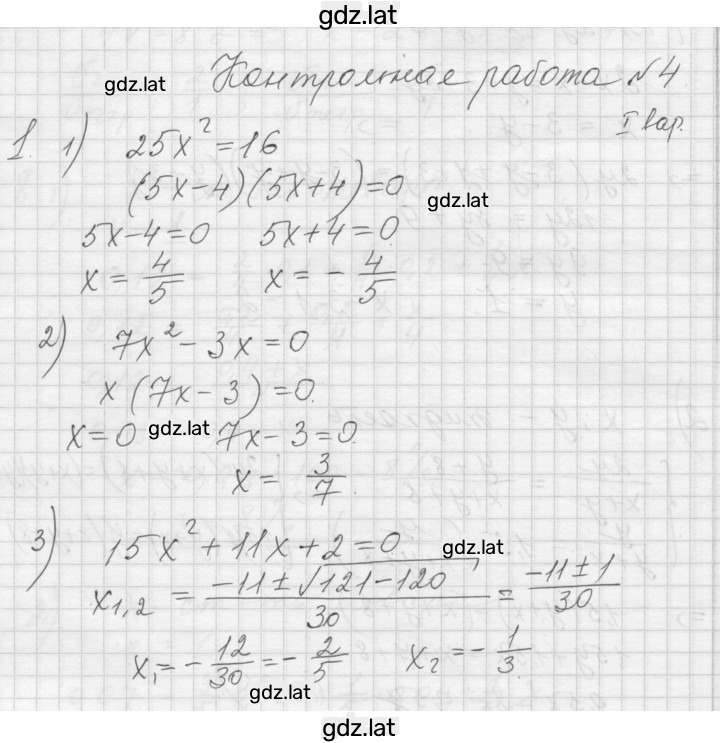 gdz.lat
Контрольная работа №4
gdz.lat
I вар.
1. 1) 25x² = 16
(5x-4)(5x+4)=0
gdz.lat
5x-4=0 5x+4=0
x = 4/5 x = - 4/5
2) 7x² - 3x = 0
x(7x-3)=0.
x=0 gdz.lat 7x-3=0.
x = 3/7.
3) 15x² + 11x + 2 = 0.
gdz.lat
x₁,₂ = (-11±√(121-120))/30 = (-11±1)/30
x₁ = -12/30 = -2/5 x₂ = -1/3.
gdz.lat
gdz.lat